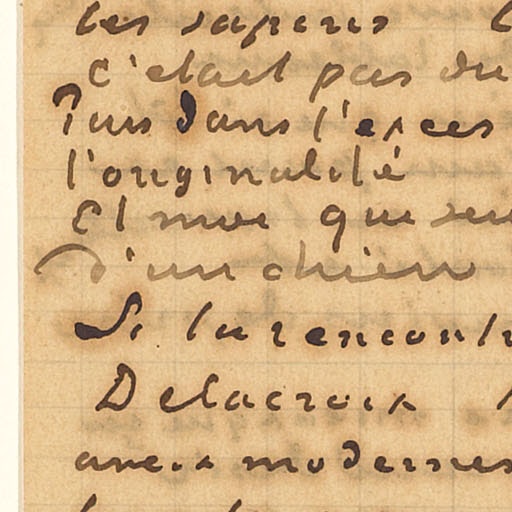 les sapeurs
c'etait pas du
Puis dans l'exces
l'originalité
Et moi que
d'un chien
Si la rencontr
Delacroix
modernes